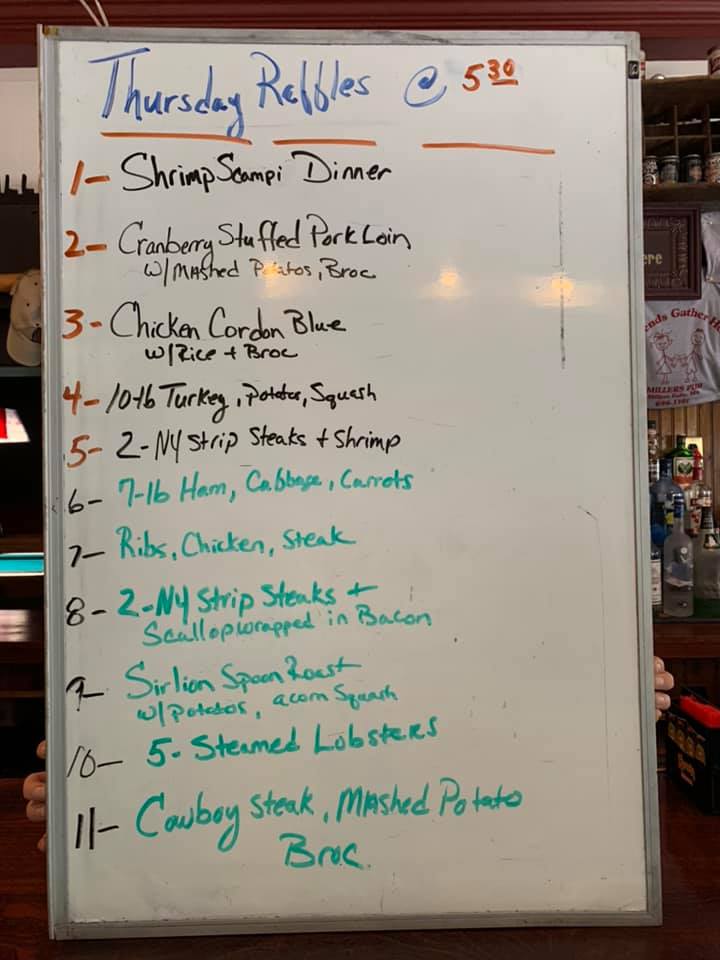 Thursday Raffles @ 5 30
1- Shrimp Scampi Dinner
2- Cranberry Stuffed Pork Loin
w/Mashed Potatos, Broc
3- Chicken Cordon Blue
w/Rice + Broc
4- 10-lb Turkey, Potatos, Squash
5- 2-NY Strip Steaks + Shrimp
6- 7-lb Ham, Cabbage, Carrots
7- Ribs, Chicken, Steak
8- 2-NY Strip Steaks +
Scallop wrapped in Bacon
9- Sirlion Spoon Roast
w/Potatos, acorn Squash
10- 5- Steamed Lobsters
11- Cowboy Steak, Mashed Potato
Broc.
ere
ends Gather H
MILLERS PUB